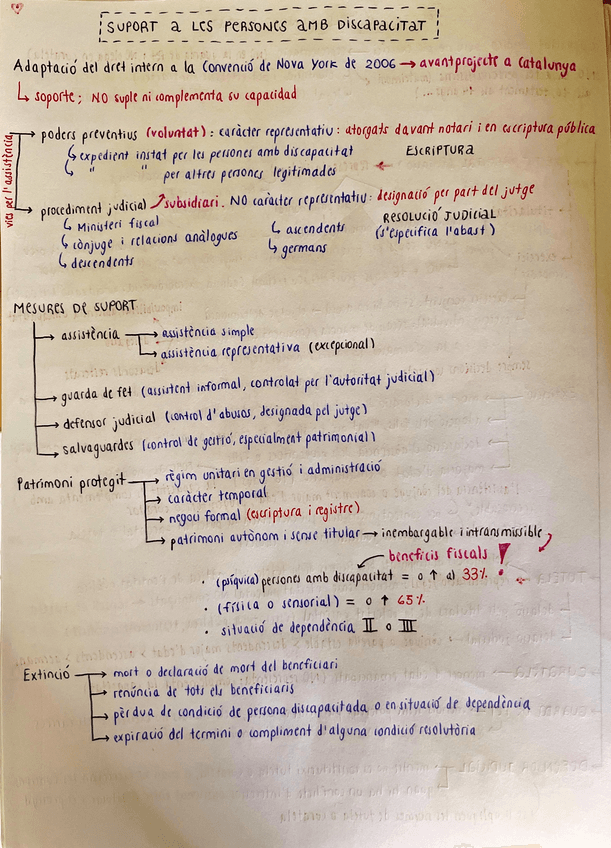 SUPORT A LES PERSONES AMB DISCAPACITAT
Adaptació del dret intern a la Convenció de Nova York de 2006 → avantprojecte a Catalunya
↳ soporte; NO suple ni complementa su capacidad
vies per l'assistència
→ poders preventius (voluntat): caràcter representatiu: atorgats davant notari i en escriptura pública
↳ expedient instat per les persones amb discapacitat ESCRIPTURA
↳ " " per altres persones legitimades ←
→ procediment judicial ↗ subsidiari. NO caràcter representatiu: designació per part del jutge
↳ Ministeri fiscal ↳ ascendents RESOLUCIÓ JUDICIAL
↳ cònjuge i relacions anàlogues ↳ germans (s'especifica l'abast)
↳ descendents
MESURES DE SUPORT
→ assistència → assistència simple
→ assistència representativa (excepcional)
→ guarda de fet (assistent informal, controlat per l'autoritat judicial)
→ defensor judicial (control d'abusos, designada pel jutge)
→ salvaguardes (control de gestió, especialment patrimonial)
Patrimoni protegit → règim unitari en gestió i administració
→ caràcter temporal
→ negoci formal (escriptura i registre)
→ patrimoni autònom i sense titular → inembargable i intransmissible
beneficis fiscals !
· (psíquica) persones amb discapacitat = o ↑ al 33%
· (física o sensorial) = o ↑ 65%
· situació de dependència II o III
Extinció → mort o declaració de mort del beneficiari
→ renúncia de tots els beneficiaris
→ pèrdua de condició de persona discapacitada o en situació de dependència
→ expiració del termini o compliment d'alguna condició resolutòria